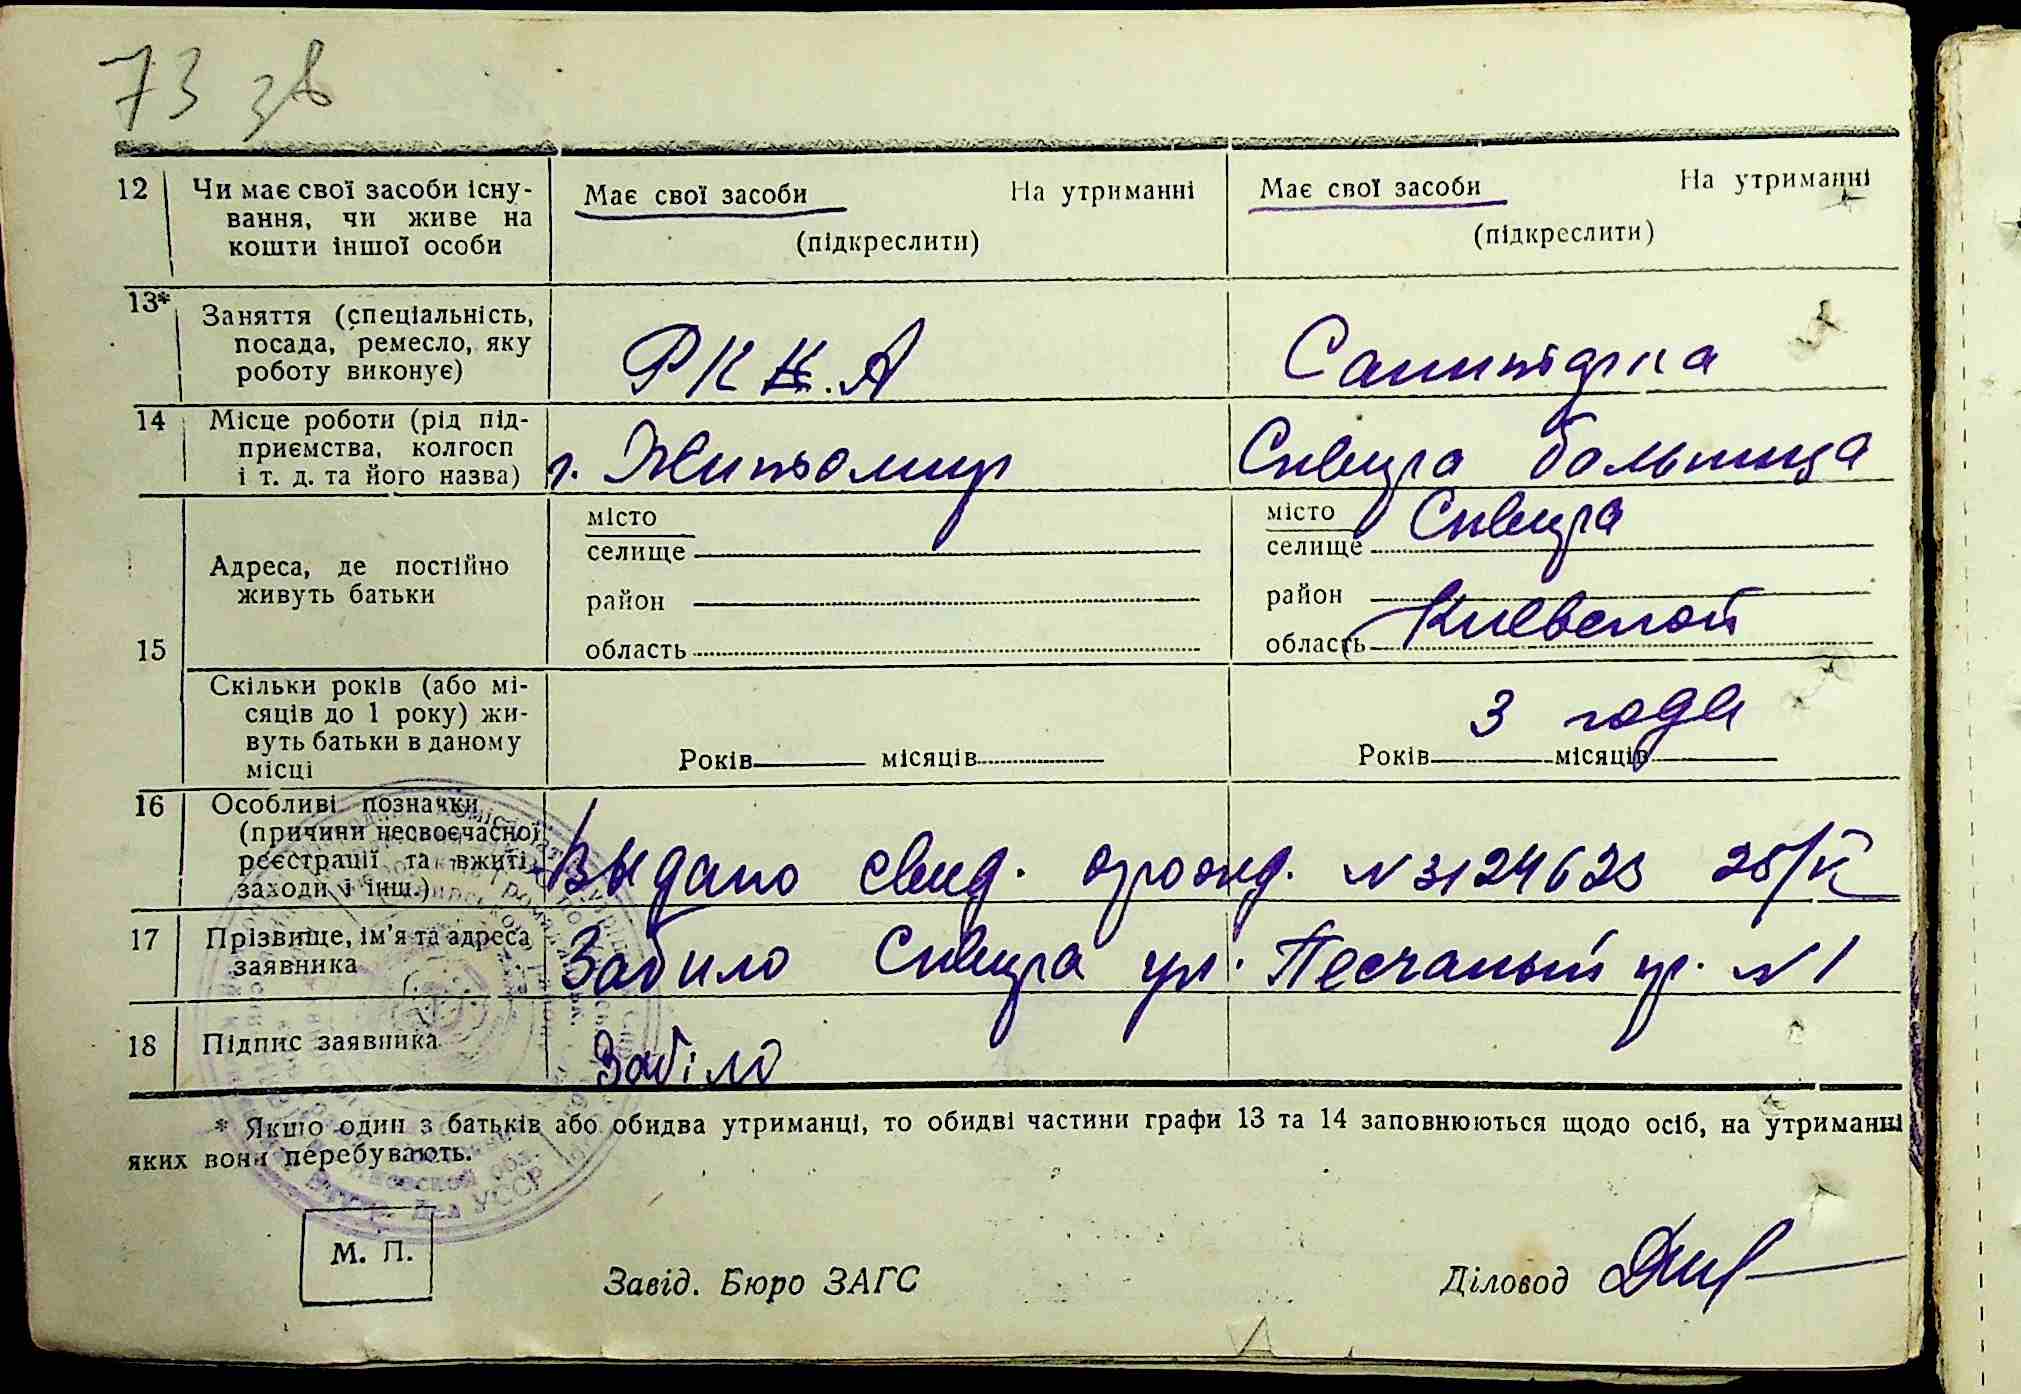 73 зв
12 Чи має свої засоби існу-
вання, чи живе на
кошти іншої особи
Має свої засоби На утриманні
(підкреслити)
Має свої засоби На утриманні
(підкреслити)
13* Заняття (спеціальність,
посада, ремесло, яку
роботу виконує)
РККА
Санитарка
14 Місце роботи (рід під-
приємства, колгосп
і т. д. та його назва)
г. Житомир
Сквира больница
15 Адреса, де постійно
живуть батьки
місто
селище
район
область
місто Сквира
селище
район
область Киевской
Скільки років (або мі-
сяців до 1 року) жи-
вуть батьки в даному
місці
Років місяців
3 года
Років місяців
16 Особливі позначки
(причини несвоєчасної
реєстрації та вжиті
заходи і інш.)
Выдано свид. о рожд. N 3124623
17 Прізвище, ім'я та адреса
заявника
Забило Сквира ул. Песчаный N 1
18 Підпис заявника
Забіло
* Якщо один з батьків або обидва утриманці, то обидві частини графи 13 та 14 заповнюються щодо осіб, на утриманні
яких вони перебувають.
М. П.
Завід. Бюро ЗАГС
Діловод